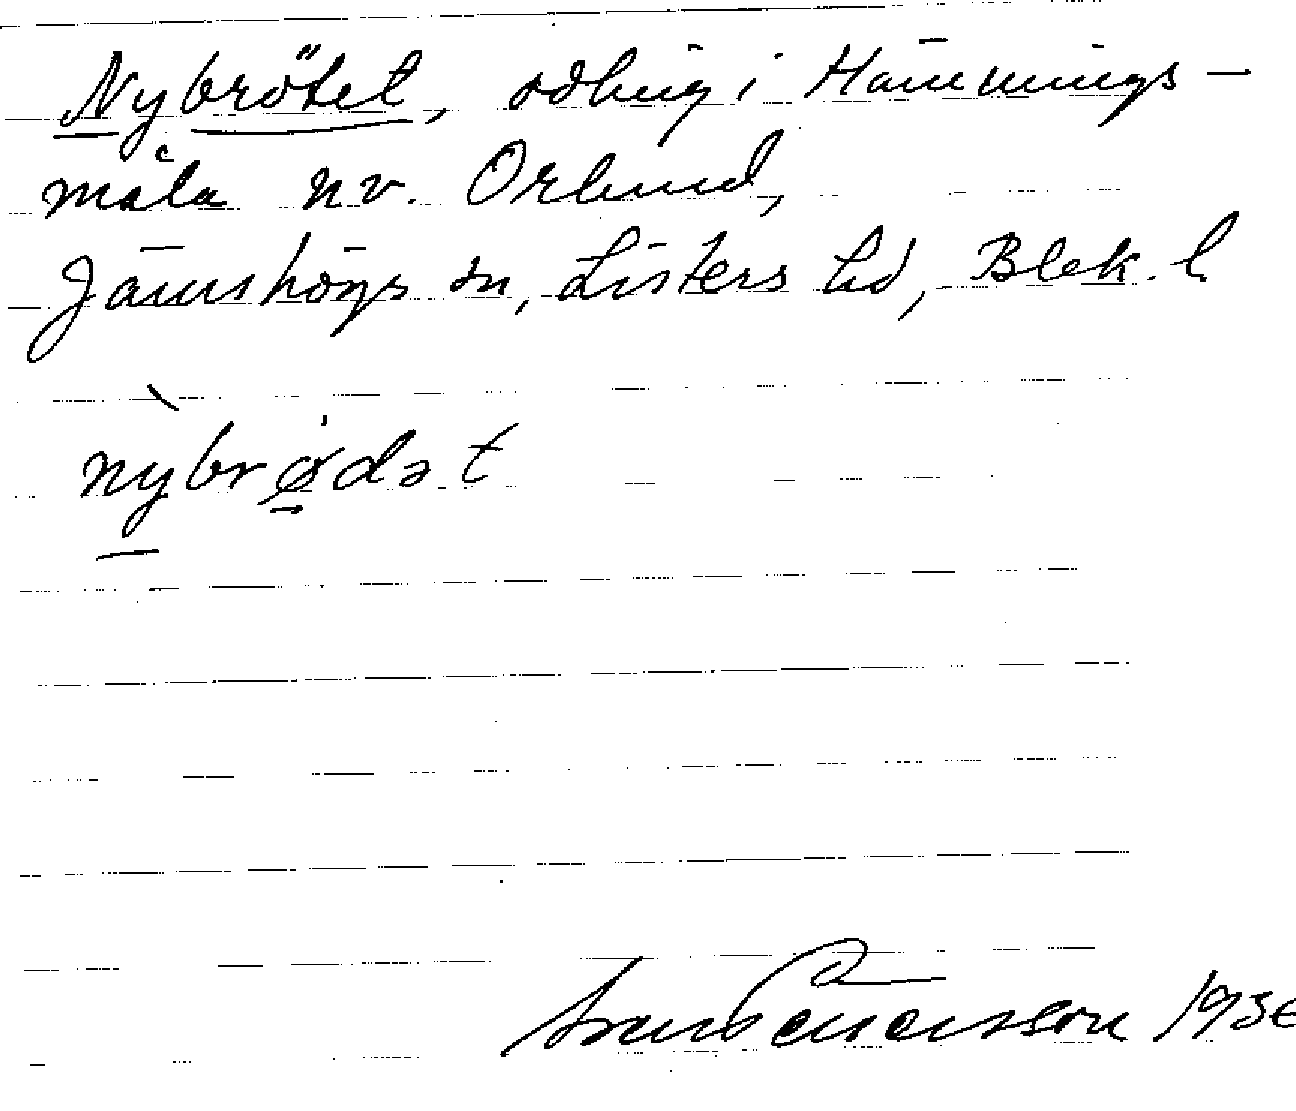 Nybrötet, odling i Hämmings-
måla nv. Orlund,
Jämshögs sn, Listers hd, Blek. l
nybrødət
1936